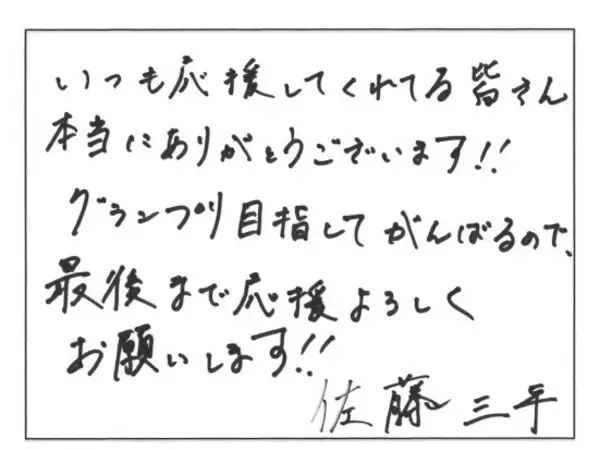 いつも応援してくれてる皆さん
本当にありがとうございます!!
グランプリ目指してがんばるので、
最後まで応援よろしく
お願いします!!
佐藤 三平